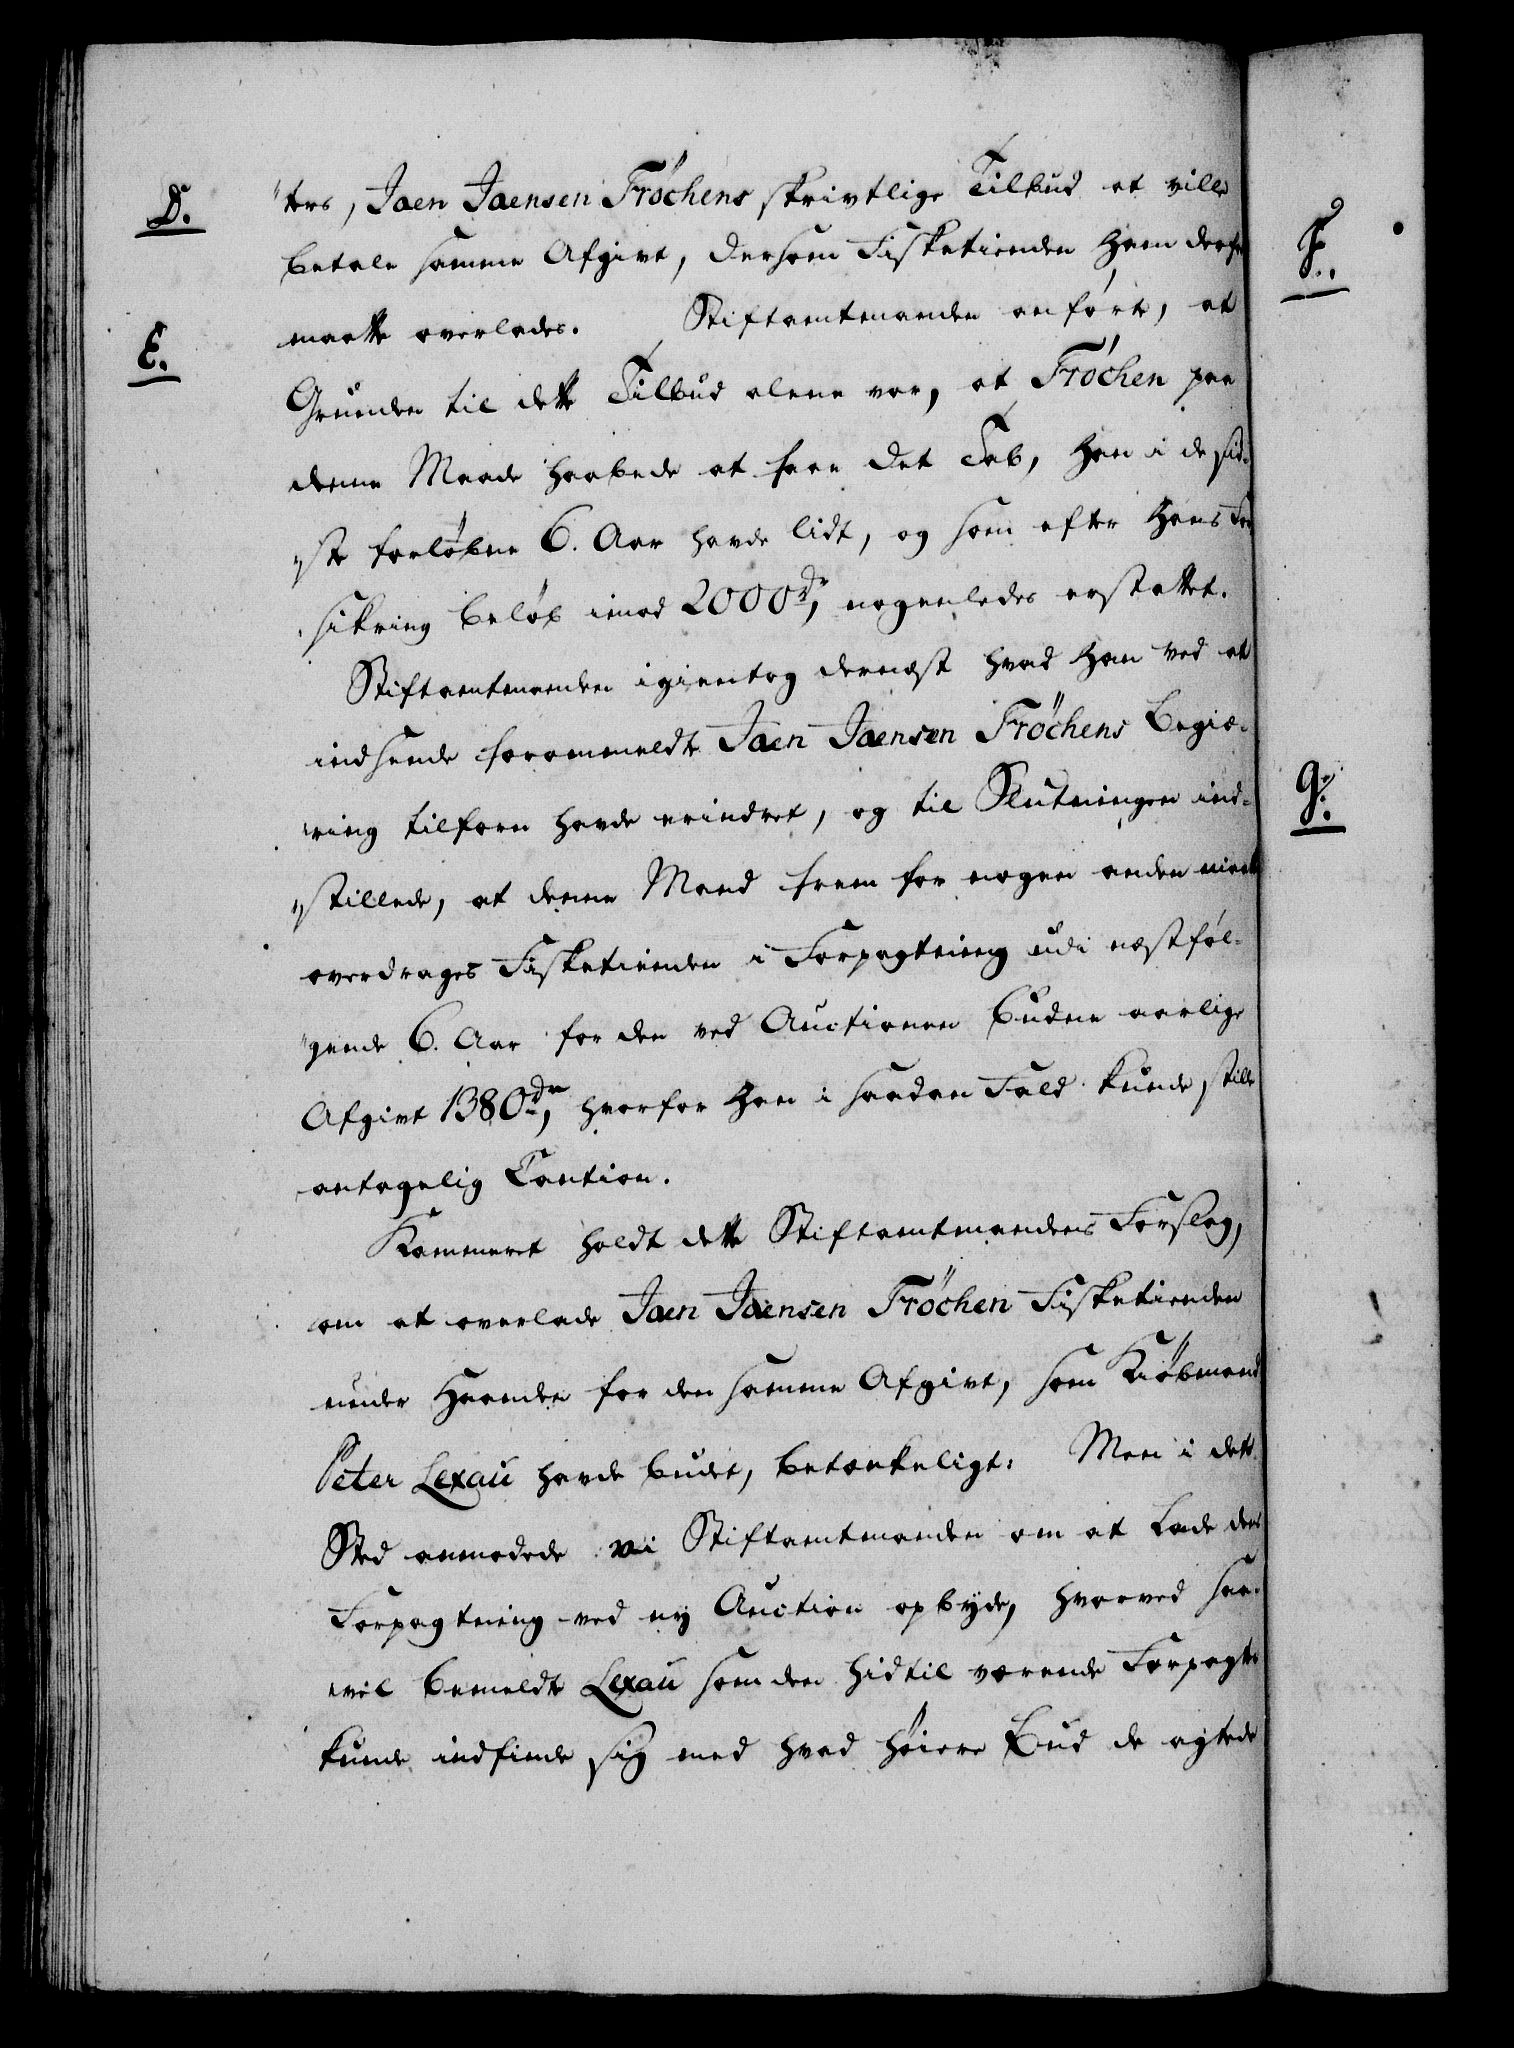 D.
"ters, Jaen Jaensen Frøchens skrivtlige Tilbud at ville
betale samme Afgivt, dersom Fisketienden ham derfor
E.
maatte overlades. Stiftamtmanden anførte, at
Grunden til dette Tilbud alene var, at Frøchen paa
denne Maade haabede at faae det Tab, han i de sid-
"ste forløbne 6. Aar havde lidt, og som efter hans For-
"sikring beløb imod 2000 rdr, nogenledes erstattet.
Stiftamtmanden igientog dernæst hvad han ved at
indsende forommeldte Jaen Jaensen Frøchens Begiæ-
"ring tilforn havde erindret, og til Slutningen ind-
"stillede, at denne Mand frem for nogen anden maatte
overdrages Fisketienden i Forpagtning udi næstføl-
"gende 6. Aar for den ved Auctionen budne aarlige
Afgivt 1380 rdr, hvorfor han i saadan Fald kunde stille
antagelig Caution.
Kammeret holdt dette Stiftamtmandens Forslag,
om at overlade Jaen Jaensen Frøchen Fisketienden
under Haanden for den samme Afgivt, som Kiøbmand
Peter Lexau havde budet, betænkeligt: Men i dets
Sted anmodede vi Stiftamtmanden om at lade den
Forpagtning ved ny Auction opbyde, hvorved saa-
"vel bemeldte Lexau som den hidtil værende Forpagter
kunde indfinde sig med hvad høiere Bud de agtede
F.
G.